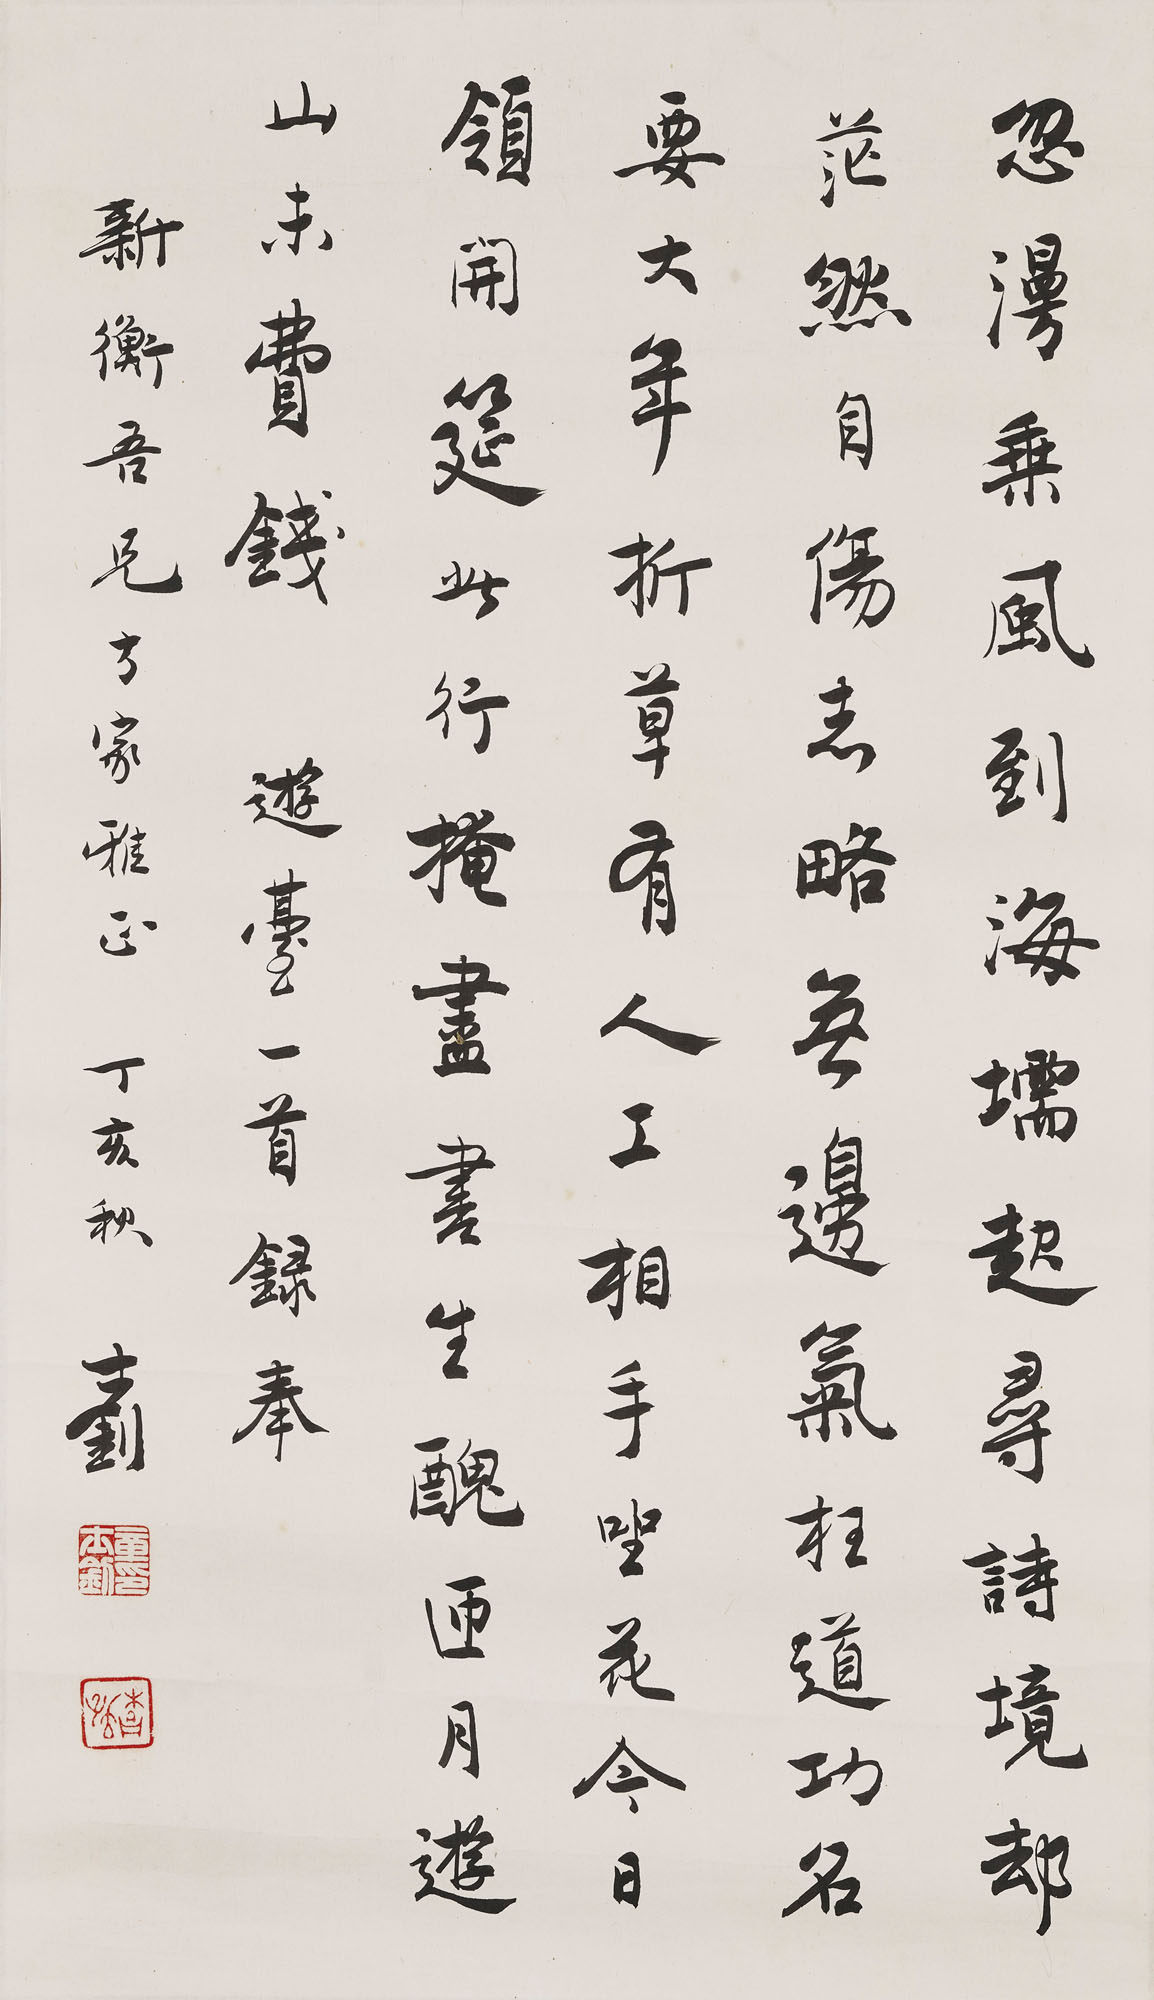 忽漫乘風到海壖起尋詩境却
茫然自傷志略無邊氣枉道功名
要大年折草有人工相手坐花今日
領開筵此行掩盡書生醜匝月遊
山未費錢
遊臺一首錄奉
新衡吾兄方家雅正 丁亥秋 士釗
章士釗印